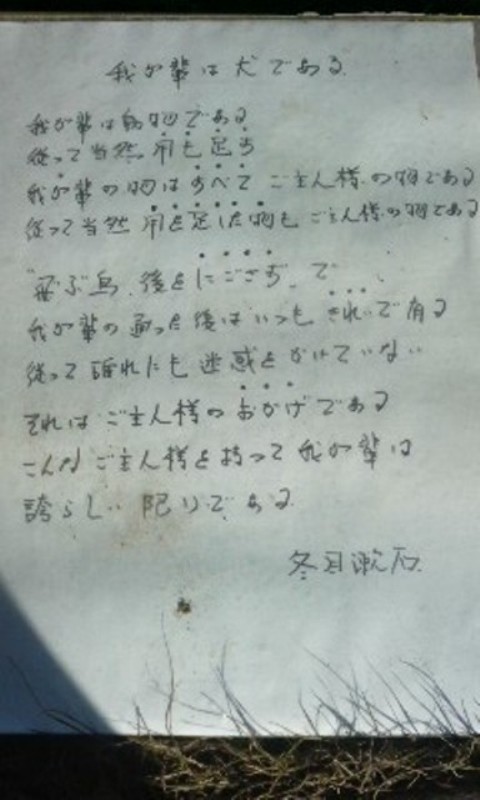 我が輩は犬である
我が輩は動物である
従って当然用も足す
我が輩の物はすべてご主人様の物である
従って当然用を足した物もご主人様の物である
"飛ぶ鳥、後をにごさず"で
我が輩の通った後はいつもきれいで有る
従って誰れにも迷惑をかけていない
それはご主人様のおかげである
こんなご主人様を持って我が輩は
誇らしい限りである
冬目漱石